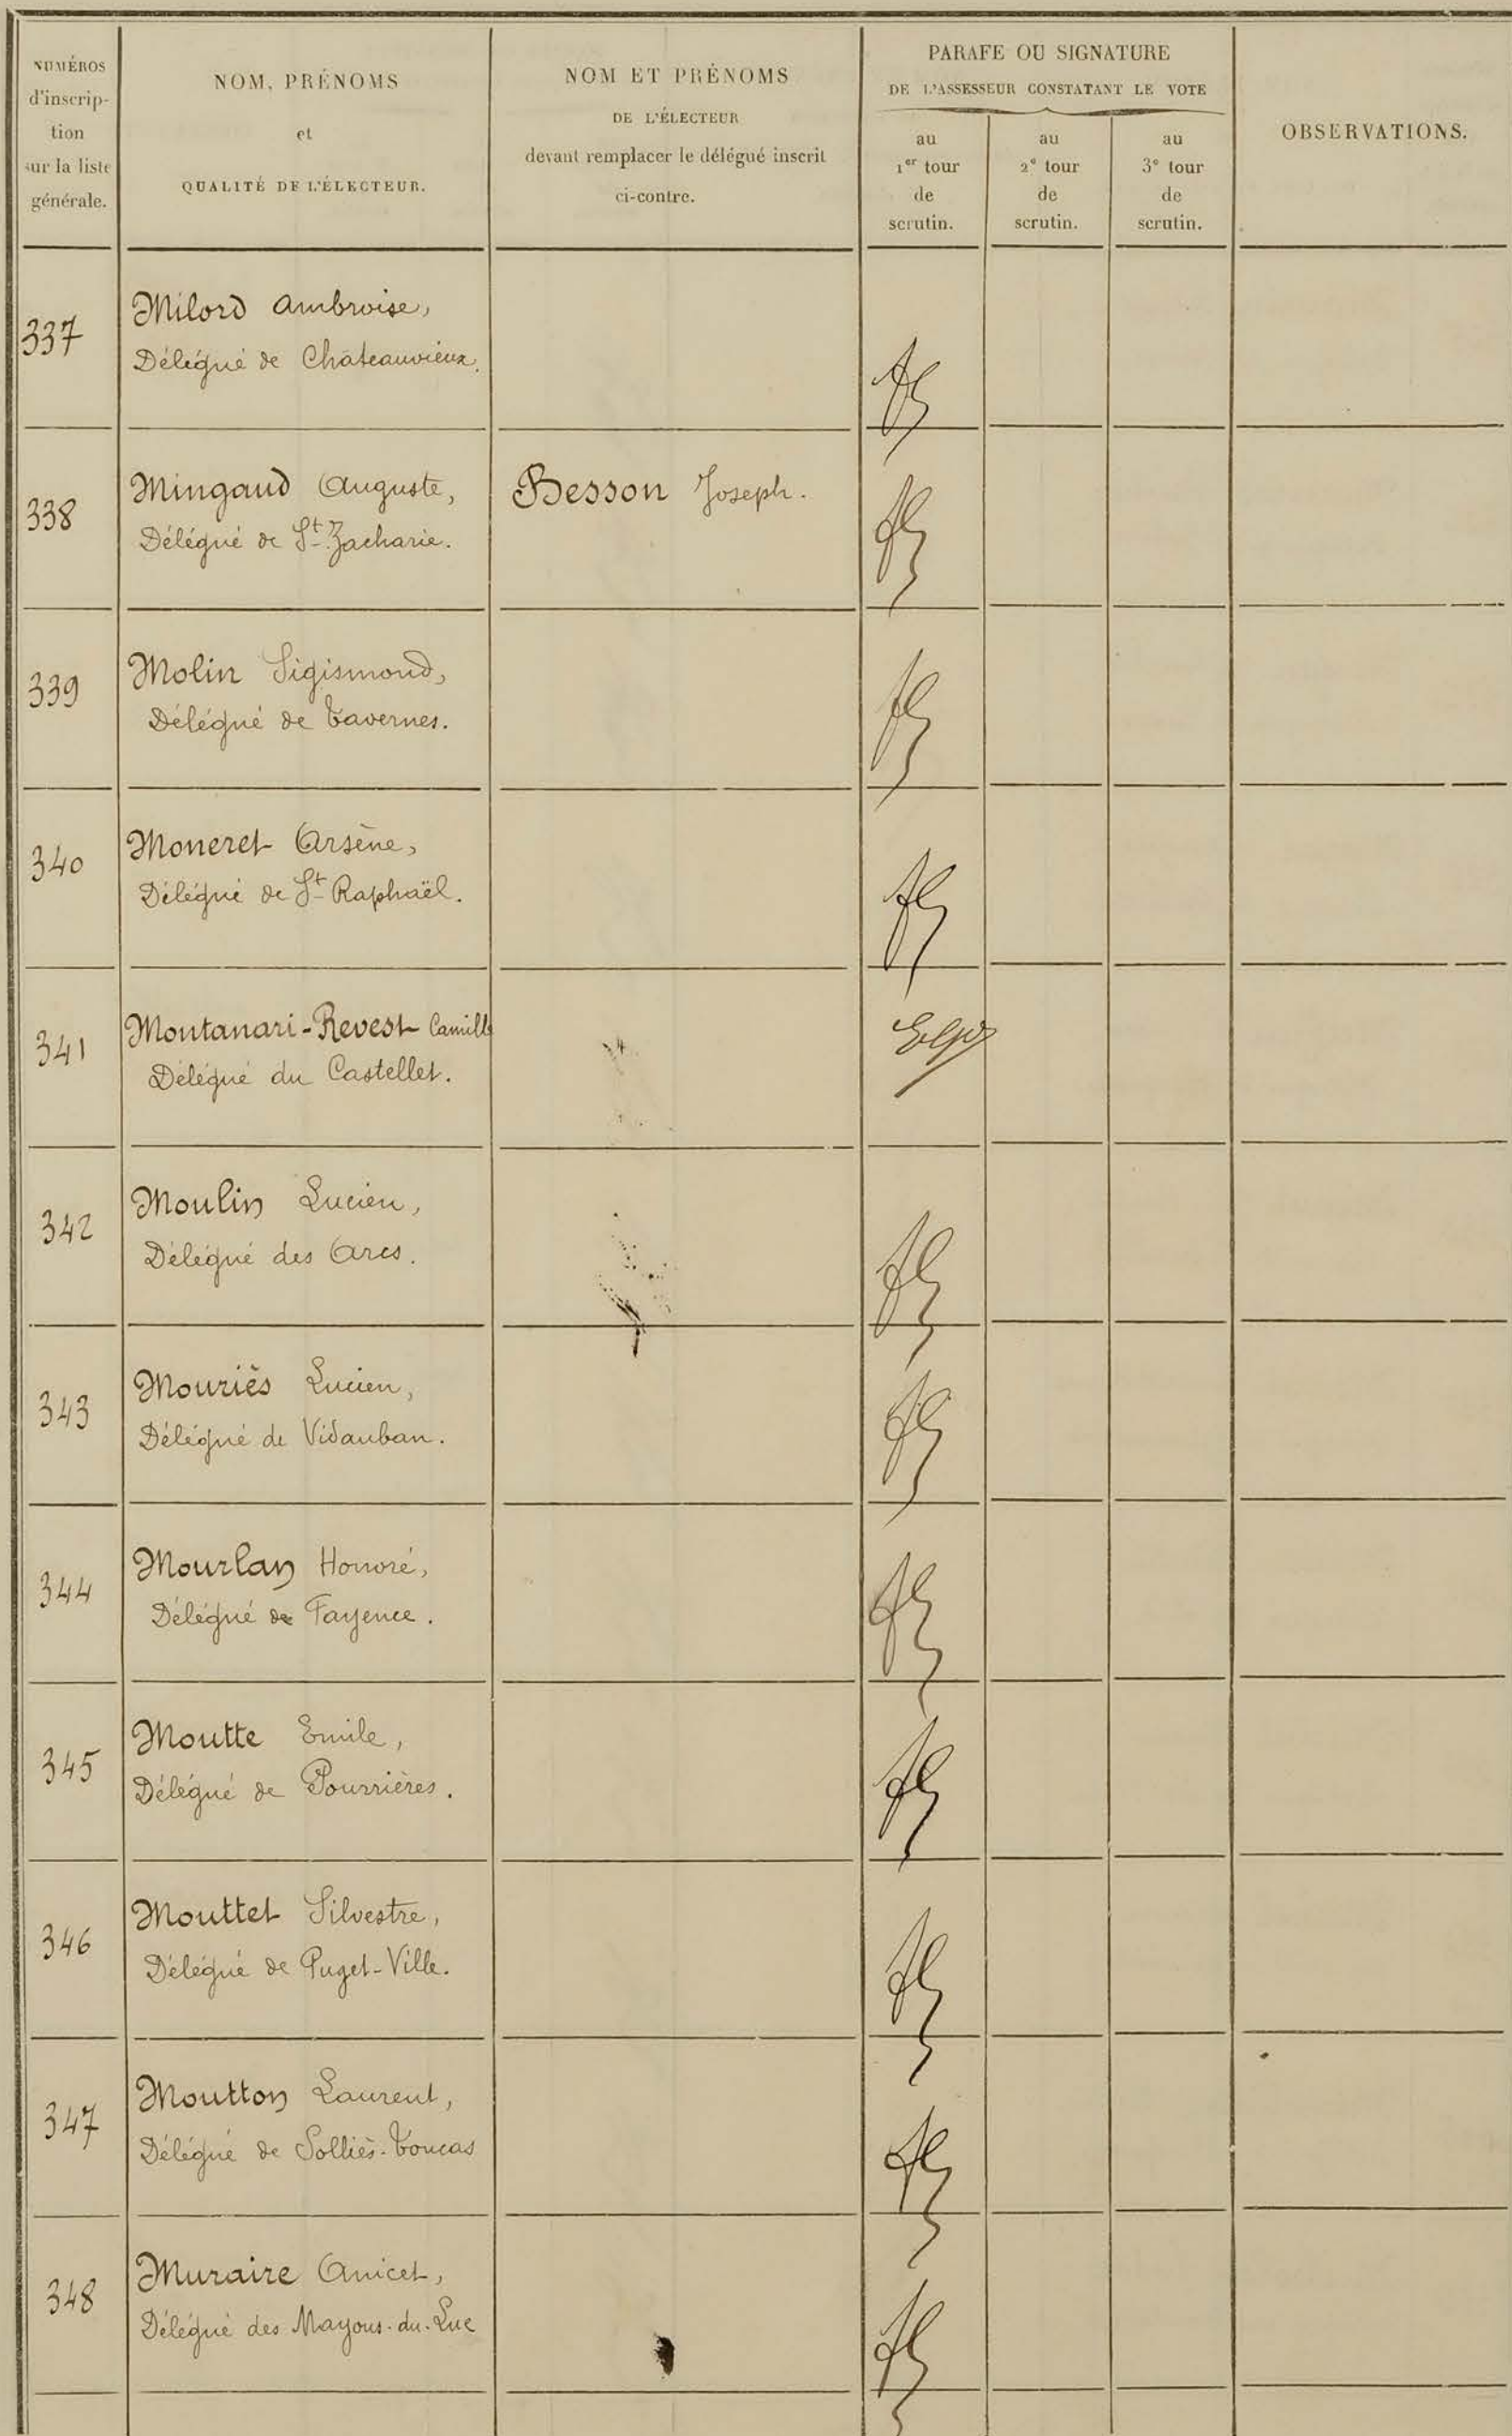 NUMÉROS
d'inscrip-
tion
sur la liste
générale.
NOM, PRÉNOMS
et
QUALITÉ DE L'ÉLECTEUR.
NOM ET PRÉNOMS
DE L'ÉLECTEUR
devant remplacer le délégué inscrit
ci-contre.
PARAFE OU SIGNATURE
DE L'ASSESSEUR CONSTATANT LE VOTE
au
1er tour
de
scrutin.
au
2e tour
de
scrutin.
au
3e tour
de
scrutin.
OBSERVATIONS.
337
Milord Ambroise,
Délégué de Châteauvieux.
338
Mingaud Auguste,
Délégué de St-Zacharie.
Besson Joseph.
339
Molin Sigismond,
Délégué de Tavernes.
340
Moneret Arsène,
Délégué de St-Raphaël.
341
Montanari-Revest Camille
Délégué du Castellet.
342
Moulin Lucien,
Délégué des Arcs.
343
Mouriès Lucien,
Délégué de Vidauban.
344
Mourlan Honoré,
Délégué de Fayence.
345
Moutte Emile,
Délégué de Pourrières.
346
Mouttet Silvestre,
Délégué de Puget-Ville.
347
Moutton Laurent,
Délégué de Solliès-Toucas
348
Muraire Anicet,
Délégué des Mayons-du-Luc